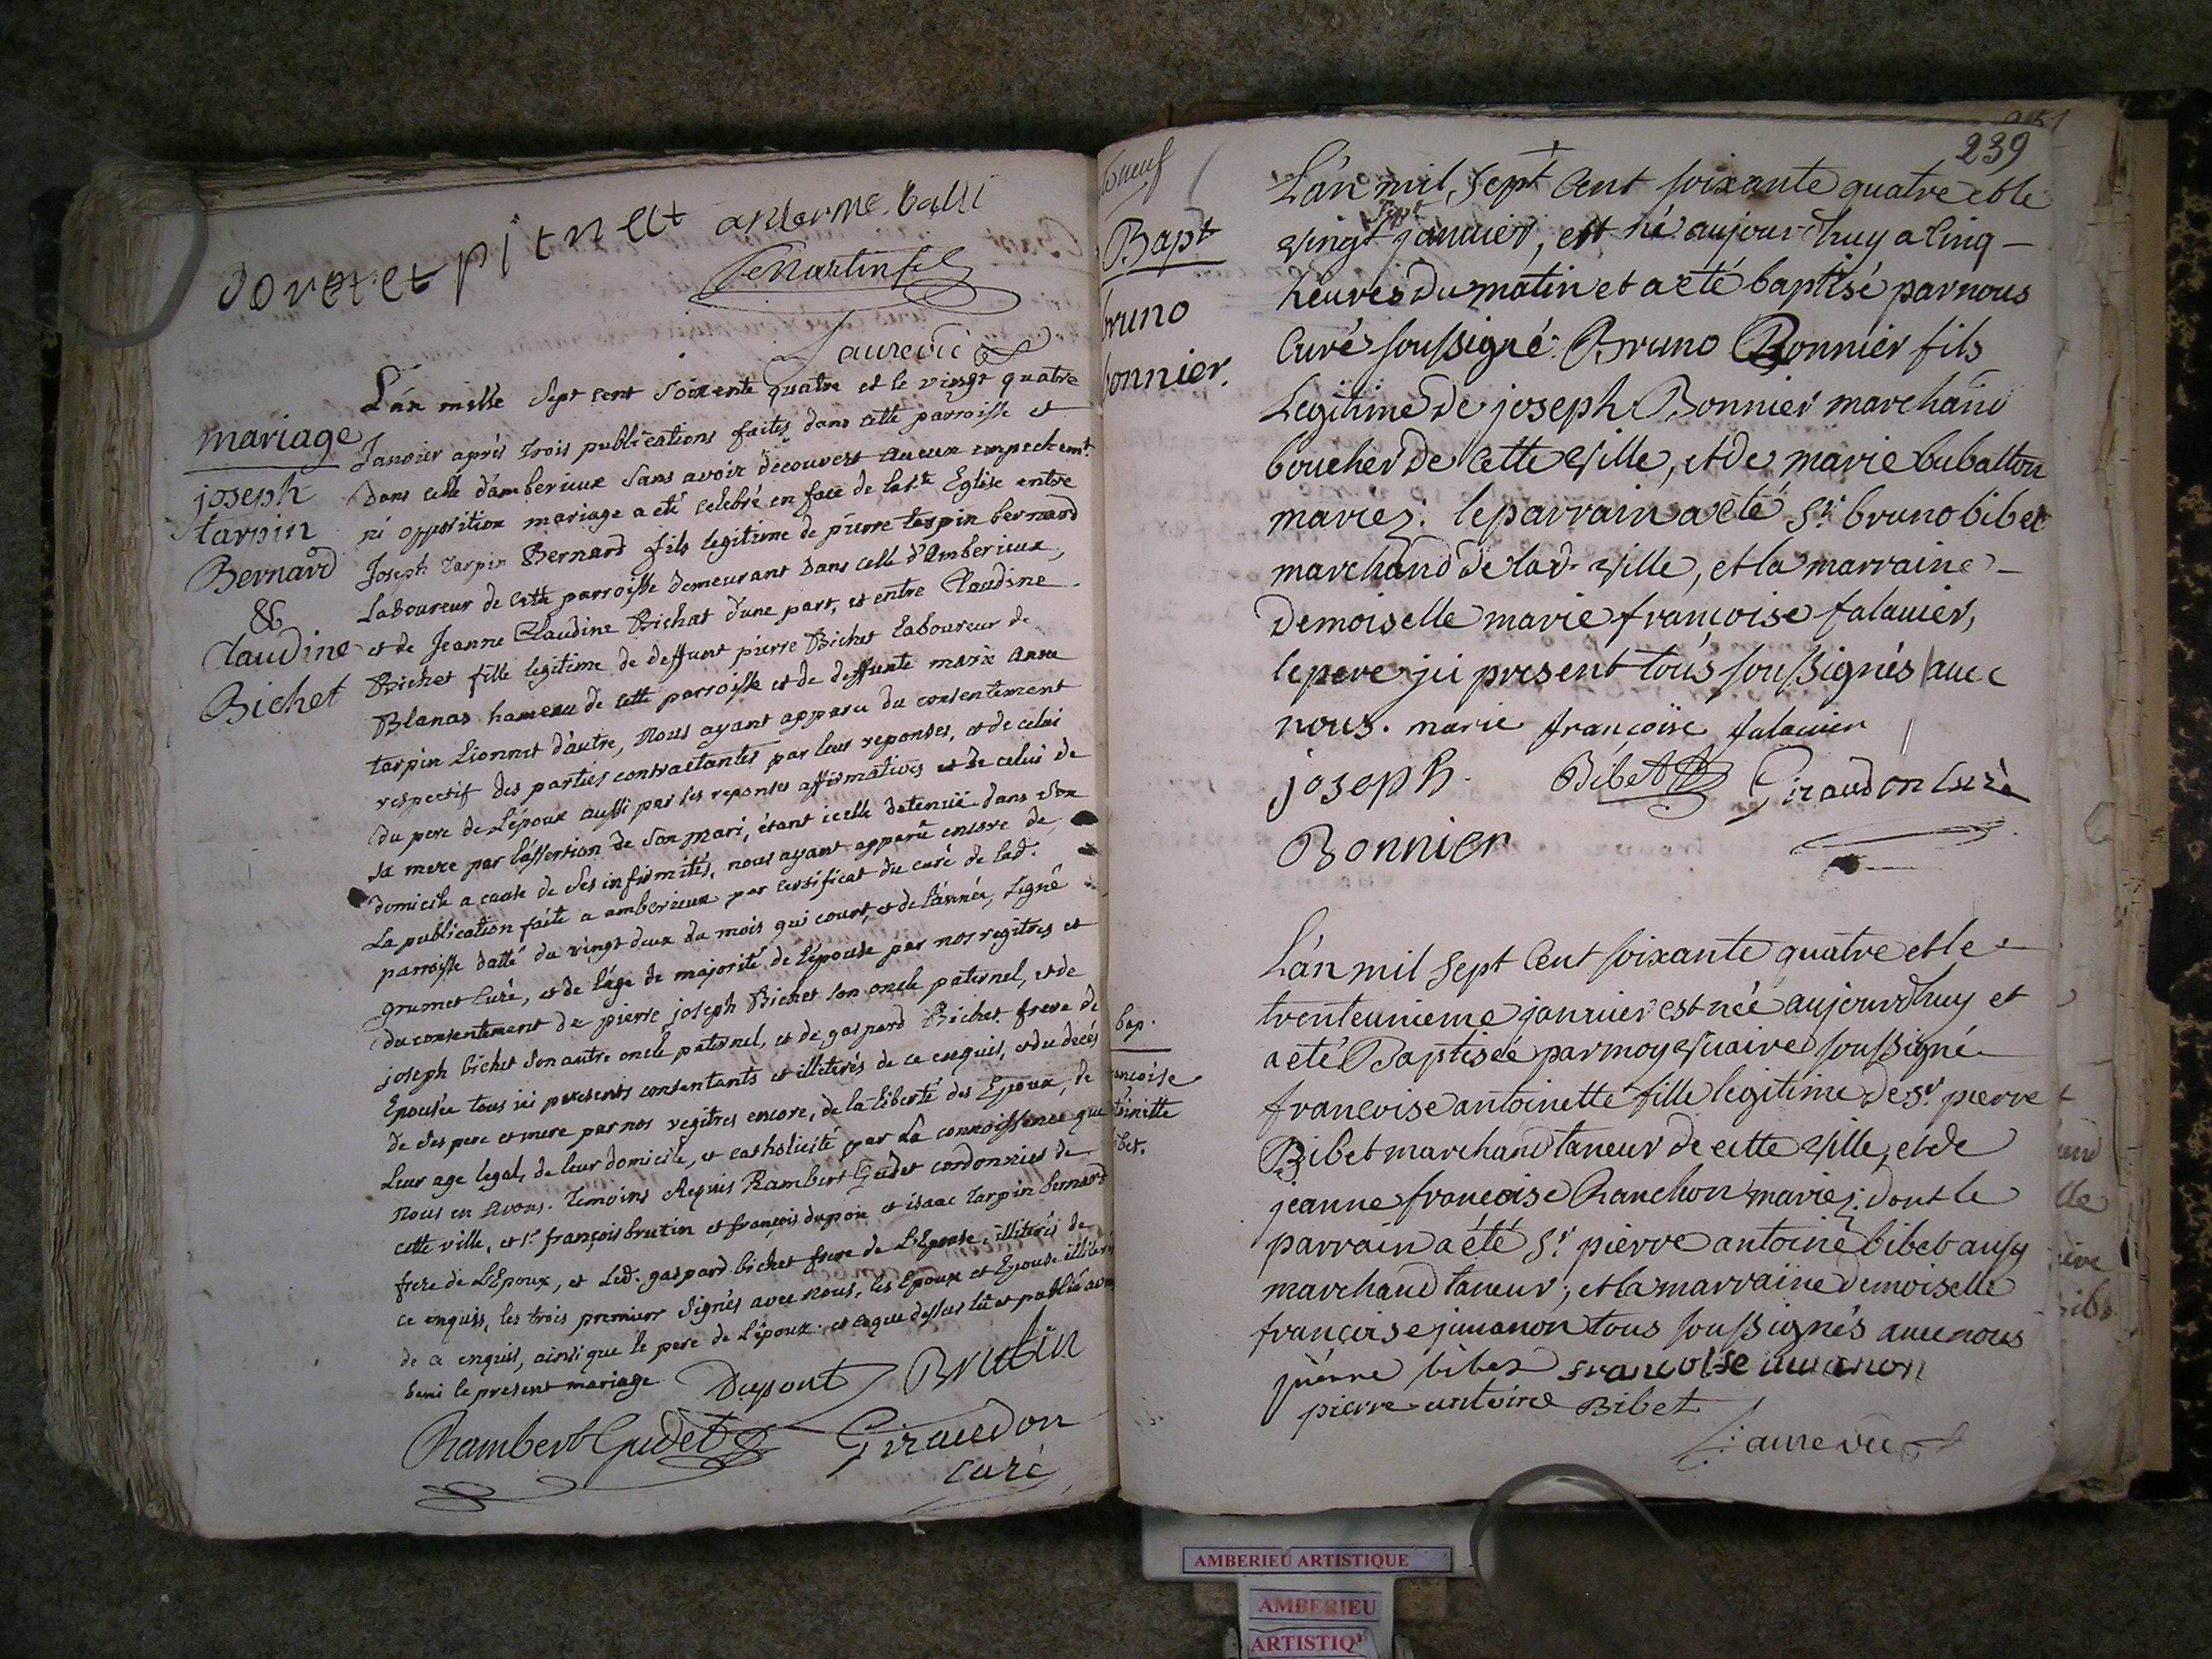 anderme balli
Laurevic
mariage
joseph
tarpin
Bernard
&
Claudine
Bichet
L'an mille Sept cent Soixente quatre et le vingt quatre
Janvier aprés trois publications faites dans cette parroisse et
dans celle d'amberieux Sans avoir decouvert aucun empechemt.
ni opposition mariage a eté celebré en face de la Ste Eglise entre
Joseph tarpin Bernard fils legitime de pierre tarpin bernard
Laboureur de cette parroisse demeurant dans celle d'Amberieux,
et de Jeanne Claudine Bichat d'une part, et entre Claudine
Bichet fille legitime de deffunt pierre Bichet laboureur de
Blanas hameau de cette parroisse et de deffunte marie anne
tarpin Lionnet d'autre, Nous ayant apparu du consentement
respectif des parties contractantes par leurs reponses, et de celui
du pere de L'époux aussi par ses reponses affirmatives et de celui de
sa mere par l'assertion de Son mari, étant icelle detenuë dans Son
domicile a cause de Ses infirmités, nous ayant apparû encore de
La publication faite a amberieux par certificat du curé de lad.
parroisse datté du vingt deux du mois qui court, et de l'année, Signé
grumet Curé, et de l'age de majorité de L'épouse par nos regitres et
du consentement de pierre joseph Bichet son oncle paternel, et de
joseph bichet Son autre oncle paternel, et de gaspard Bichet frere de
Epousée tous ici presents consentants et illiterés de ce enquis, et du decés
de Ses pere et mere par nos regitres encore, de la Liberté des Epoux, de
Leur age legal, de leur domicile, et catholicité par La connoissence que
Nous en Avons. Temoins Requis Rambert Gudet cordonnier de
cette ville, et Sr. françois brutin et françois dupon et isaac tarpin bernard
frere de L'Epoux, et Led. gaspard bichet frere de L'Epouse, illiterés de
ce enquis, les trois premiers Signés avec nous, les Epoux et Epouse illiterés
de ce enquis, ainsi que le pere de L'époux. et ce que dessus lû et publié avons
beni le present mariage
Dupont Brutin
Rambert Gudet Giraudon
curé
239
Bapt
bruno
bonnier.
L'an mil, sept Cent soixante quatre et le
vingt sept janvier, est né aujourd'huy a Cinq -
heures du matin et a eté baptisé par nous
Curé soussigné Bruno Bonnier fils
Legitime de joseph Bonnier marchand
boucher de Cette ville, et de marie bubatton
mariés: le parrain a eté Sr. bruno bibet
marchand de lad. ville, et la marraine -
demoiselle marie françoise falavier,
le pere ici present tous soussignés avec
nous. marie françoise falavier
joseph Bibet Giraudon curé
Bonnier
bap.
ancoise
toinette
bet.
L'an mil Sept Cent soixante quatre et le
trenteunieme janvier est née aujourdhuy et
a eté Baptisée par moy vicaire soussigné
francoise antoinette fille legitime de Sr. pierre
Bibet marchand taneur de cette ville, et de
jeanne francoise Ranchon mariés: dont le
parrain a été Sr. pierre antoine bibet aussy
marchand taneur; et la marraine demoiselle
françoise juvanon tous soussignés avec nous
pierre bibet francoise juvanon
pierre antoine Bibet
Laurevic
AMBERIEU ARTISTIQUE
AMBERIEU
ARTISTIQ